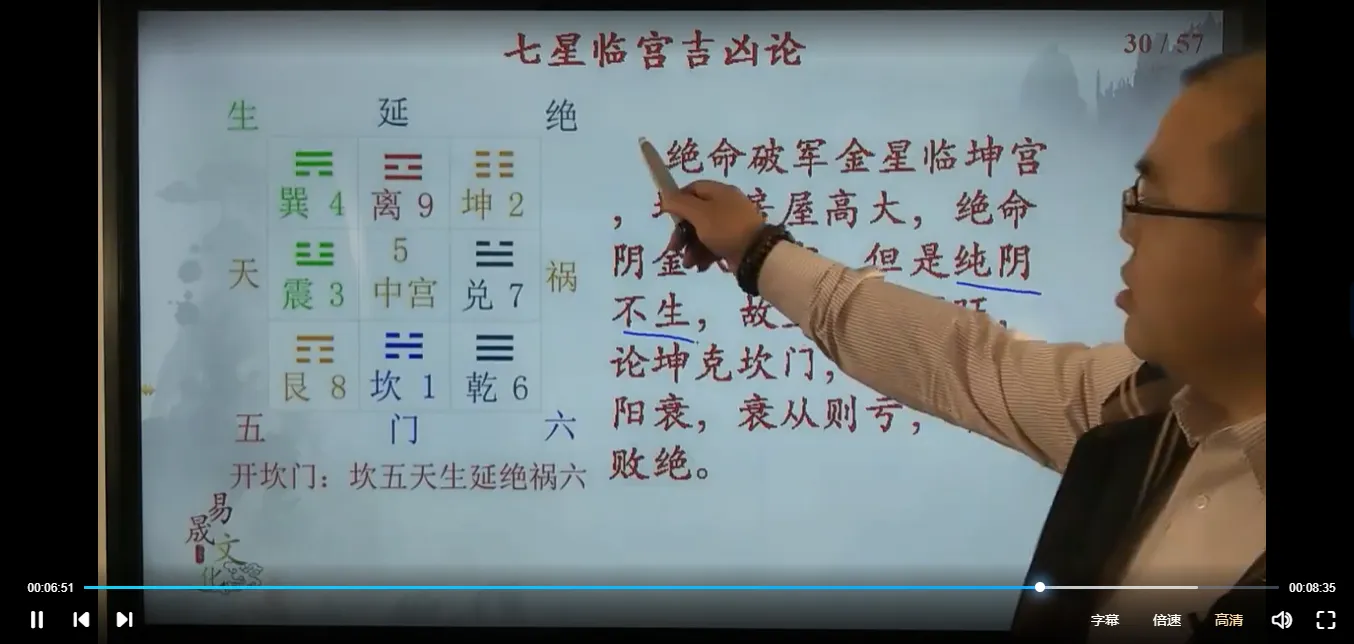 七星临宫吉凶论
30 / 57
生 延 绝
巽 4 离 9 坤 2
天 震 3 5 中宫 兑 7 祸
艮 8 坎 1 乾 6
五 门 六
开坎门：坎五天生延绝祸六
绝命破军金星临坤宫
，房屋高大，绝命
阴金 但是纯阴
不生，故
论坤克坎门，
阳衰，衰从则亏，
败绝。
易晟文化
00:06:51
00:08:35
字幕 倍速 高清